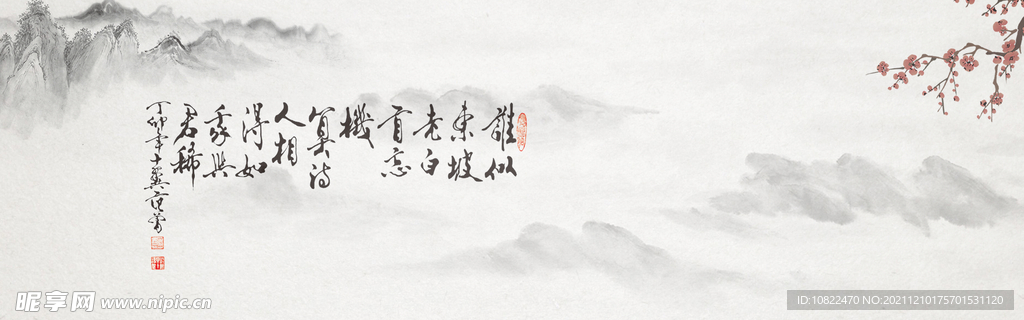 誰似
東坡
老白
首忘
機
算詩
人相
得如
我與
君稀
丁卯年十翼范曾
昵享网 www.nipic.cn
ID:10822470 NO:20211210175701531120